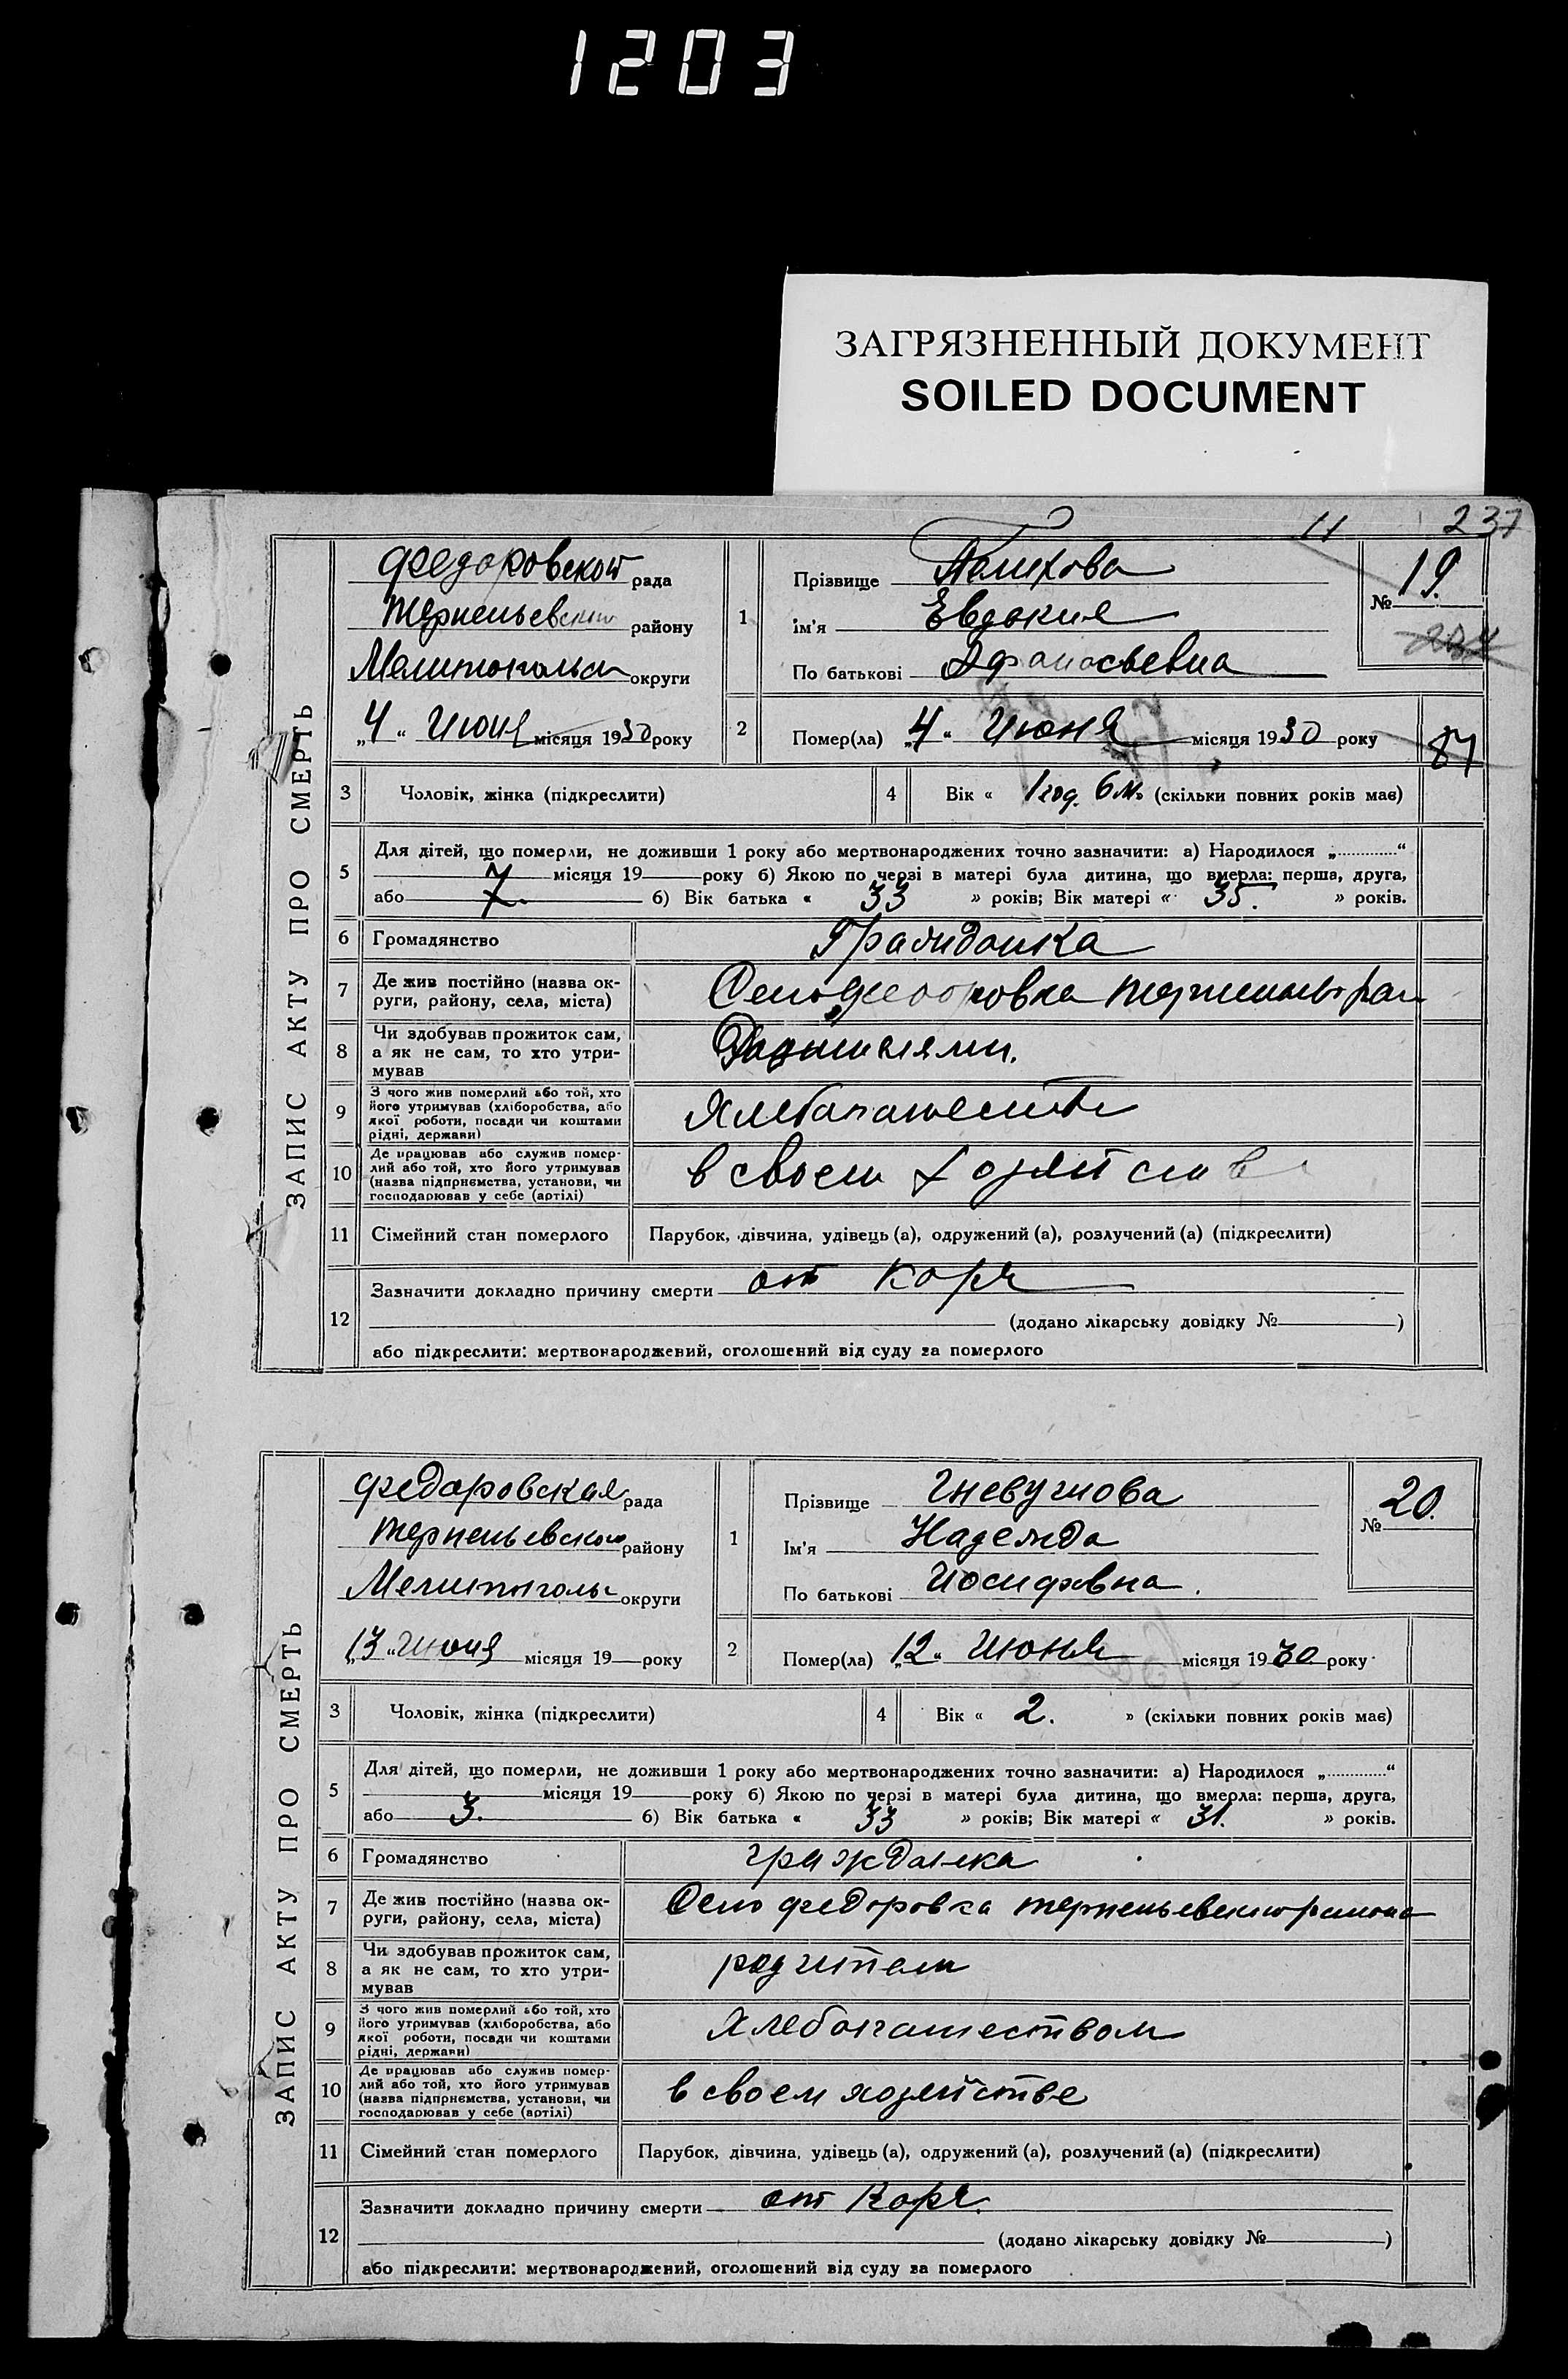 1203
ЗАГРЯЗНЕННЫЙ ДОКУМЕНТ
SOILED DOCUMENT
11 237
ЗАПИС АКТУ ПРО СМЕРТЬ
Федоровской рада
Терпеньевского району
Мелитопольск округи
„4“ Июня місяця 1930 року
1
Прізвище
Ім'я Евдокия
По батькові Афанасьевна
№ 19.
2 Помер(ла) „4“ Июня місяця 1930 року
3 Чоловік, жінка (підкреслити)
4 Вік « 1 год. 6 м. » (скільки повних років має)
5 Для дітей, що померли, не доживши 1 року або мертвонароджених точно зазначити: а) Народилося „............“
місяця 19 року б) Якою по черзі в матері була дитина, що вмерла: перша, друга,
або 7. б) Вік батька « 33 » років; Вік матері « 35. » років.
6 Громадянство Гражданка
7 Де жив постійно (назва ок-
руги, району, села, міста)
Село Федоровка Терпеньев рай
8 Чи здобував прожиток сам,
а як не сам, то хто утри-
мував
Родителями.
9 З чого жив померлий або той, хто
його утримував (хліборобства, або
якої роботи, посади чи коштами
рідні, держави)
10 Де працював або служив помер-
лий або той, хто його утримував
(назва підприємства, установи, чи
господарював у себе (артілі)
в своем хозяйстве
11 Сімейний стан померлого Парубок, дівчина, удівець (а), одружений (а), розлучений (а) (підкреслити)
12 Зазначити докладно причину смерти от Коря
(додано лікарську довідку № )
або підкреслити: мертвонароджений, оголошений від суду за померлого
ЗАПИС АКТУ ПРО СМЕРТЬ
Федоровская рада
Терпеньевского району
Мелитополь округи
„13“ Июня місяця 19 року
1
Прізвище Гневушова
Ім'я Надежда
По батькові Иосифовна.
№ 20.
2 Помер(ла) „12“ Июня місяця 1930 року
3 Чоловік, жінка (підкреслити)
4 Вік « 2. » (скільки повних років має)
5 Для дітей, що померли, не доживши 1 року або мертвонароджених точно зазначити: а) Народилося „............“
місяця 19 року б) Якою по черзі в матері була дитина, що вмерла: перша, друга,
або 3. б) Вік батька « 33 » років; Вік матері « 31. » років.
6 Громадянство гражданка
7 Де жив постійно (назва ок-
руги, району, села, міста)
Село Федоровка Терпеньевского района
8 Чи здобував прожиток сам,
а як не сам, то хто утри-
мував
родители
9 З чого жив померлий або той, хто
його утримував (хліборобства, або
якої роботи, посади чи коштами
рідні, держави)
Хлебопашеством
10 Де працював або служив помер-
лий або той, хто його утримував
(назва підприємства, установи, чи
господарював у себе (артілі)
в своем хозяйстве
11 Сімейний стан померлого Парубок, дівчина, удівець (а), одружений (а), розлучений (а) (підкреслити)
12 Зазначити докладно причину смерти от Коря.
(додано лікарську довідку № )
або підкреслити: мертвонароджений, оголошений від суду за померлого